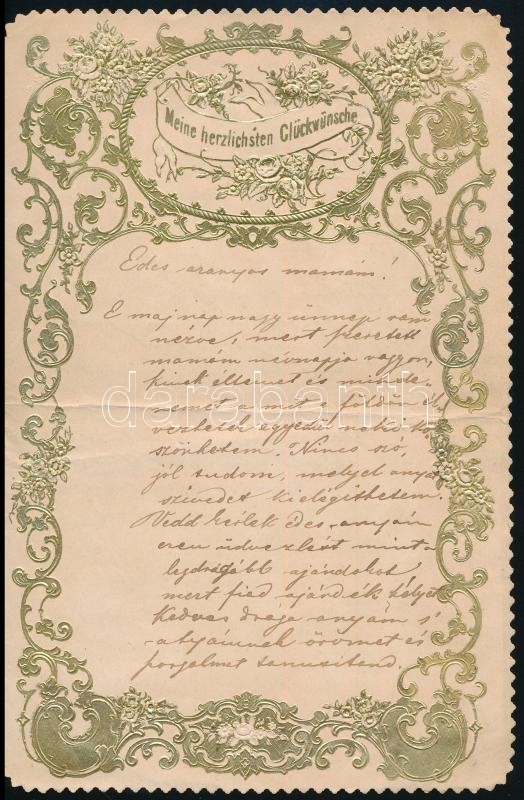 Meine herzlichsten Glückwünsche
Edes aranyos mamám!
E mai nap nagy ünnep rám
nézve, mert szeretett
mamám névnapja vagyon,
kinek éltemet és minde-
nemet a
egyedül
szönhetem. Nincs szó,
jól tudom, melyel anyai
szivedet kielégithetem.
Vedd kérlek édes anyám
ezen üdvözlést mint a
legdrágább ajándokot
mert fiad ajándék helyet
kedves drága anyám s
atyámnak örömet és
szorgalmat tanusitand.
darabanth